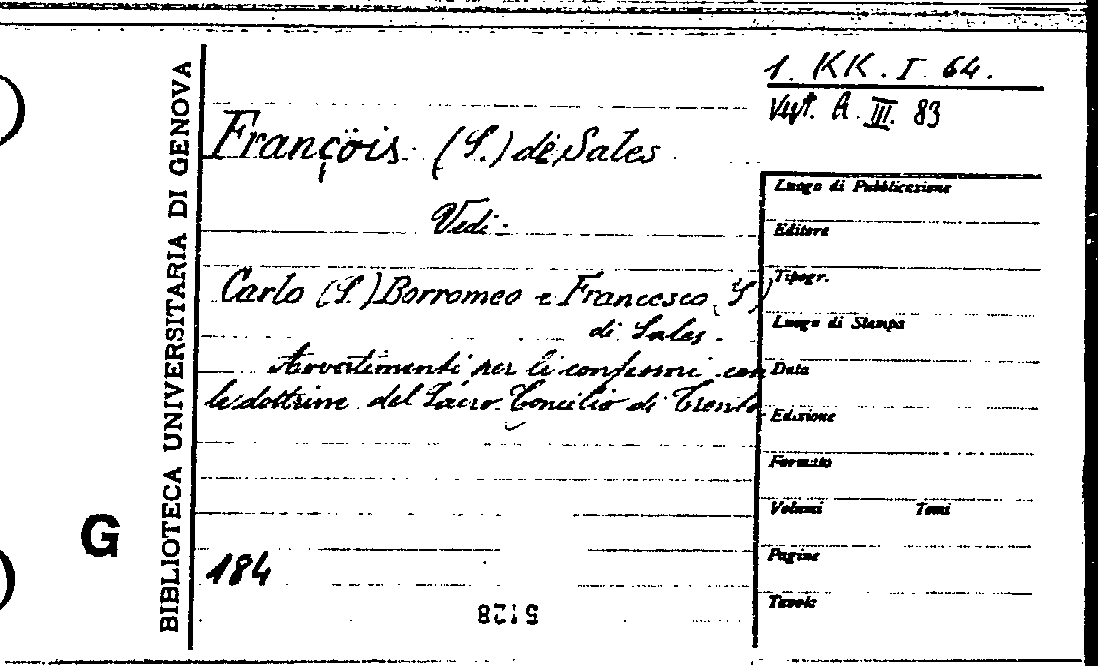 1. KK. I 64.
Vert. A. III. 83
François (S.) de Sales
Vedi:
Carlo (S.) Borromeo e Francesco (S.)
di Sales.
Avvertimenti per li confessori con
le dottrine del Sacro Concilio di Trento
184
5128
BIBLIOTECA UNIVERSITARIA DI GENOVA
G
Luogo di Pubblicazione
Editore
Tipogr.
Luogo di Stampa
Data
Edizione
Formato
Volumi Tomi
Pagine
Tavole